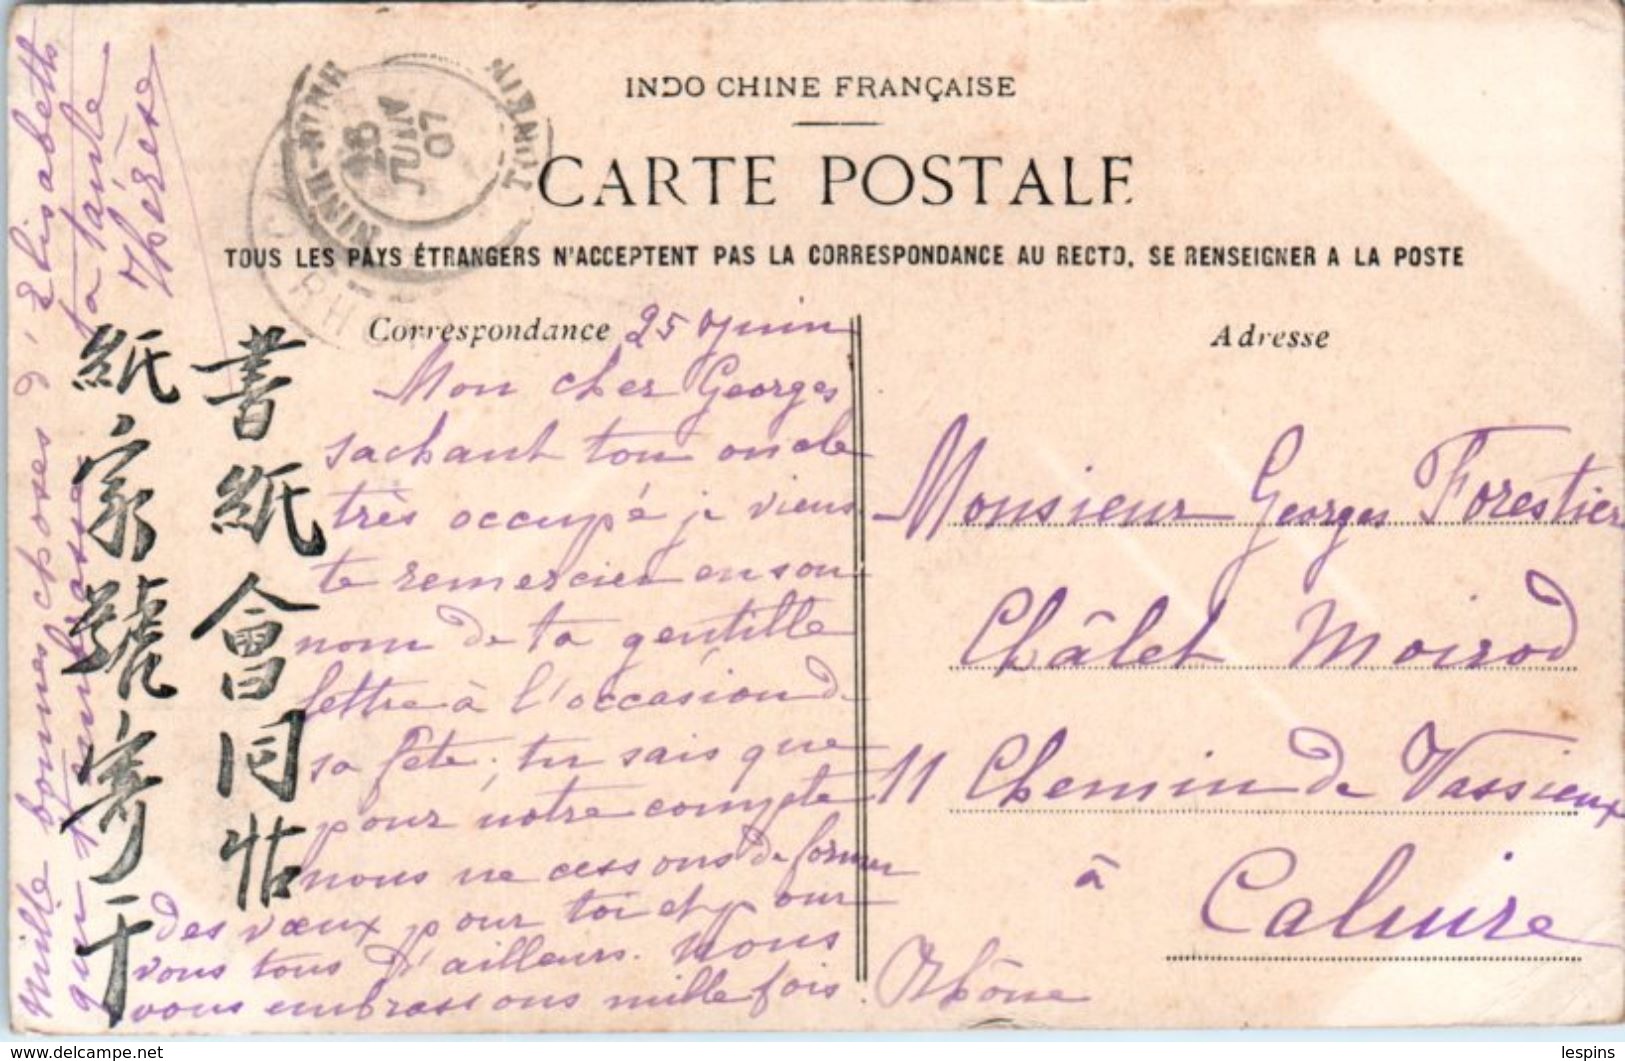 INDO CHINE FRANÇAISE
CARTE POSTALE
TOUS LES PAYS ÉTRANGERS N'ACCEPTENT PAS LA CORRESPONDANCE AU RECTO, SE RENSEIGNER A LA POSTE
NINH-BINH
TONKIN
26
JUIN
07
Correspondance
25 Juin
Mon cher Georges
sachant ton oncle
très occupé je viens
te remercier en son
nom de ta gentille
lettre à l'occasion de
sa fête; tu sais que
pour notre compte
nous ne cessons de former
des vœux pour toi et pour
vous tous d'ailleurs. Nous
vous embrassons mille fois.
Mille bonnes choses d'Elisabeth
qui t'embrasse
ta tante
Thérèse
書紙會同帖
紙家號寄于
Adresse
Monsieur Georges Forestier
Châlet Moirod
11 Chemin de Vassieux
à Caluire
Rhône
lespins
delcampe.net